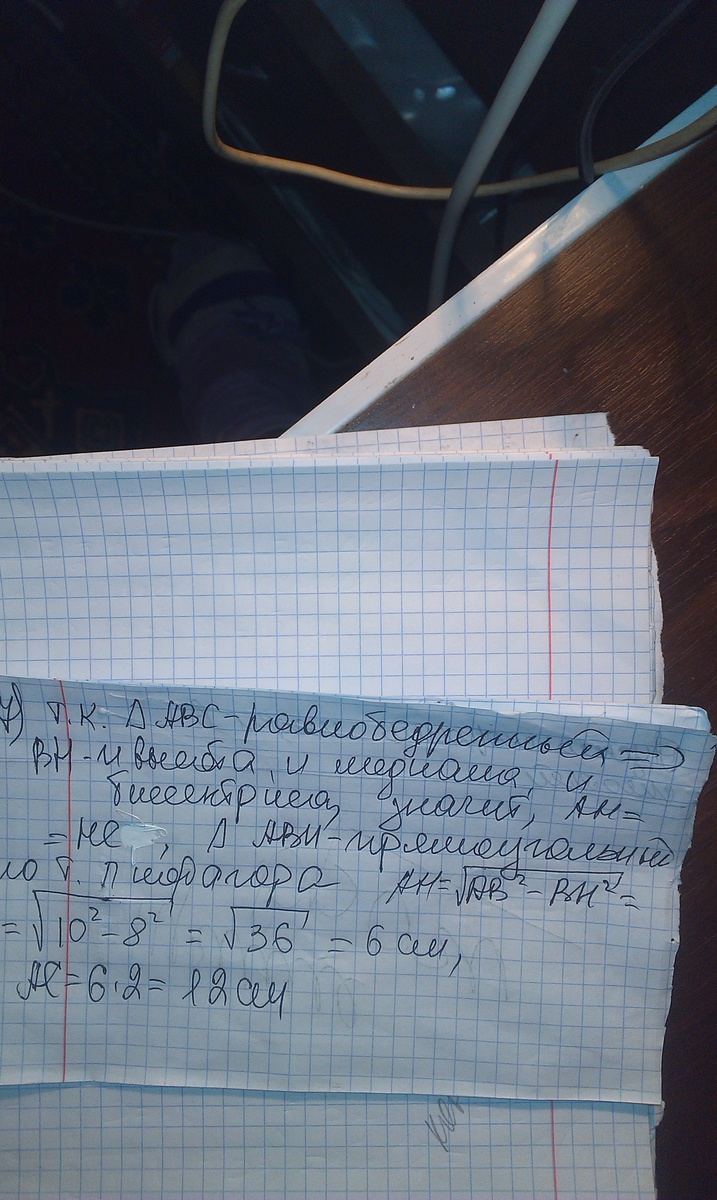 7) Т.К. Δ ABC - равнобедренный ⇒
BH - и высота, и медиана, и
биссектриса, значит, AH =
= HC, Δ ABH - прямоугольный
по т. Пифагора AH = √AB² - BH² =
= √10² - 8² = √36 = 6 см,
AC = 6 · 2 = 12 см